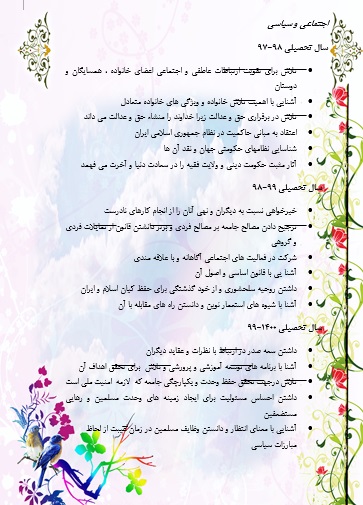 اجتماعی و سیاسی
سال تحصیلی ۹۸-۹۷
تلاش برای تقویت ارتباطات عاطفی و اجتماعی اعضای خانواده ، همسایگان و
دوستان
آشنایی با اهمیت تلاش خانواده و ویژگی های خانواده متعادل
تلاش در برقراری حق و عدالت زیرا خداوند را منشاء حق و عدالت می داند
اعتقاد به مبانی حاکمیت در نظام جمهوری اسلامی ایران
شناسایی نظامهای حکومتی جهان و نقد آن ها
آثار مثبت حکومت دینی و ولایت فقیه را در سعادت دنیا و آخرت می فهمد
سال تحصیلی ۹۹-۹۸
خیرخواهی نسبت به دیگران و نهی آنان را از انجام کارهای نادرست
ترجیح دادن مصالح جامعه بر مصالح فردی و برتر دانستن قانون از تمایلات فردی
و گروهی
شرکت در فعالیت های اجتماعی آگاهانه و با علاقه مندی
آشنا یی با قانون اساسی و اصول آن
داشتن روحیه سلحشوری و از خود گذشتگی برای حفظ کیان اسلام و ایران
آشنا یا شیوه های استعمار نوین و دانستن راه های مقابله با آن
سال تحصیلی ۱۴۰۰-۹۹
داشتن سعه صدر در ارتباط با نظرات و عقاید دیگران
آشنا با برنامه های توسعه آموزشی و پرورشی و تلاش برای تحقق اهداف آن
تلاش درجهت تحقق حفظ وحدت و یکپارچگی جامعه که لازمه امنیت ملی است
داشتن احساس مسئولیت برای ایجاد زمینه های وحدت مسلمین و رهایی
مستضعفین
آشنایی با معنای انتظار و دانستن وظایف مسلمین در زمان غیبت از لحاظ
مبارزات سیاسی